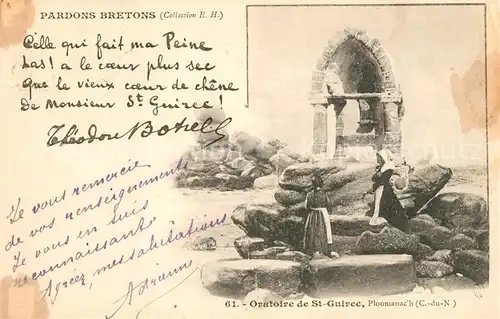 PARDONS BRETONS (Collection E. H.)
Celle qui fait ma Peine
Las! a le cœur plus sec
Que le vieux cœur de chêne
De Monsieur St Guirec!
Théodore Botrel
Je vous remercie
de vos renseignements
Je vous en suis
reconnaissant.
Agréez, mes salutations
Adrienne
61. - Oratoire de St-Guirec, Ploumanac'h (C.-du-N.)